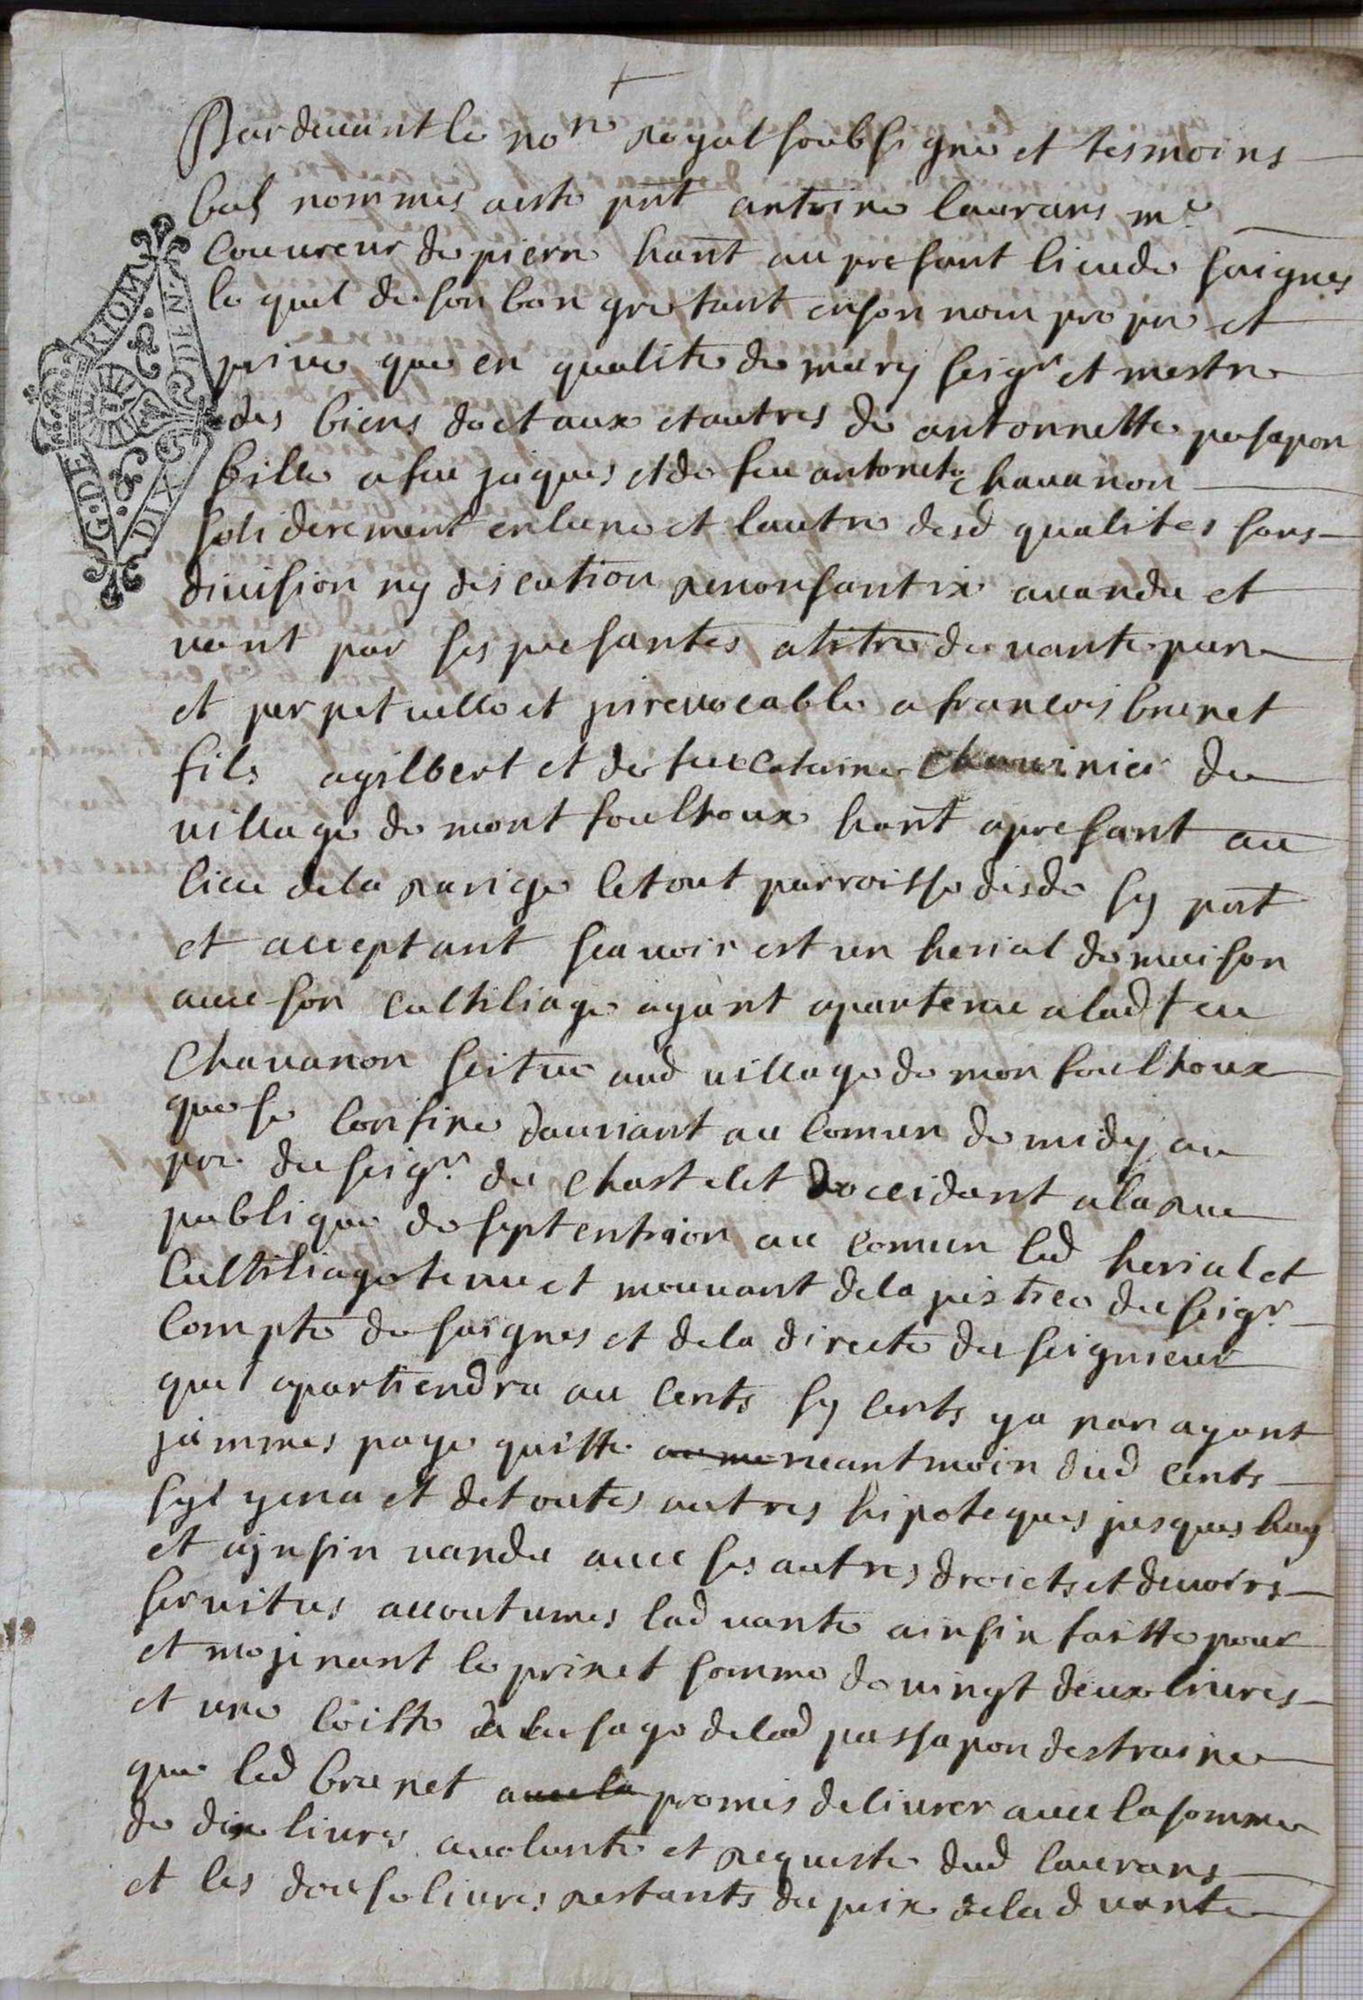 Par devant le no.re royal soubsigne et tesmoins
bas nommes a este pnt antoine laurans m.e
couureur de pierre hant au presant lieu de saignes
le quel de son bon gre tant en son nom propre et
prive que en qualite de mary seig.r et mestre
des biens doctaux et autres de antonnette pasapon
fille a feu jaques et de feu antonete chauanon
soliderement en lune et lautre desd qualites sans
diuision ny discution renonsant ix a uandu et
uant par ses presantes a titre de uante pure
et perpetuelle et jireuocable a francois brunet
fils a gilbert et de feue caterine du
uillage de montfoulhoux hant a presant au
lieu de la le tout parroisse disde sy pnt
et acceptant scauoir est un herial de maison
auec son culhiliage ayant apartenu a lad feu
Chauanon scitue aud uillage de monfoulhoux
que se confine d'auriant au comun de midy au
pre du seig.r du chastelet d'occidant a la rue
publique de septentrion au comun led herial et
culhiliage tenu et mouuant de la justice du seig.r
compte de saignes et de la directe du seignieur
quil apartiendra au cents sy cents y a nan ayant
jammes paye quitte neantmoin dud cents
syl yena et de toutes autres hipoteques jusques huy
et ajnsin uandu auec ses autres droicts et deuoirs
seruitus accoutumes lad uante ainsin faitte pour
et mojenant le prix et somme de uingt deux liures
et une coiffe a lusage de lad passapon destraine
que led brunet promis deliurer auec la somme
de dix liures a uolante et requeste dud laurans
et les douse liures restants du prix de lad uante
G. DE RIOM
DIX DEN.